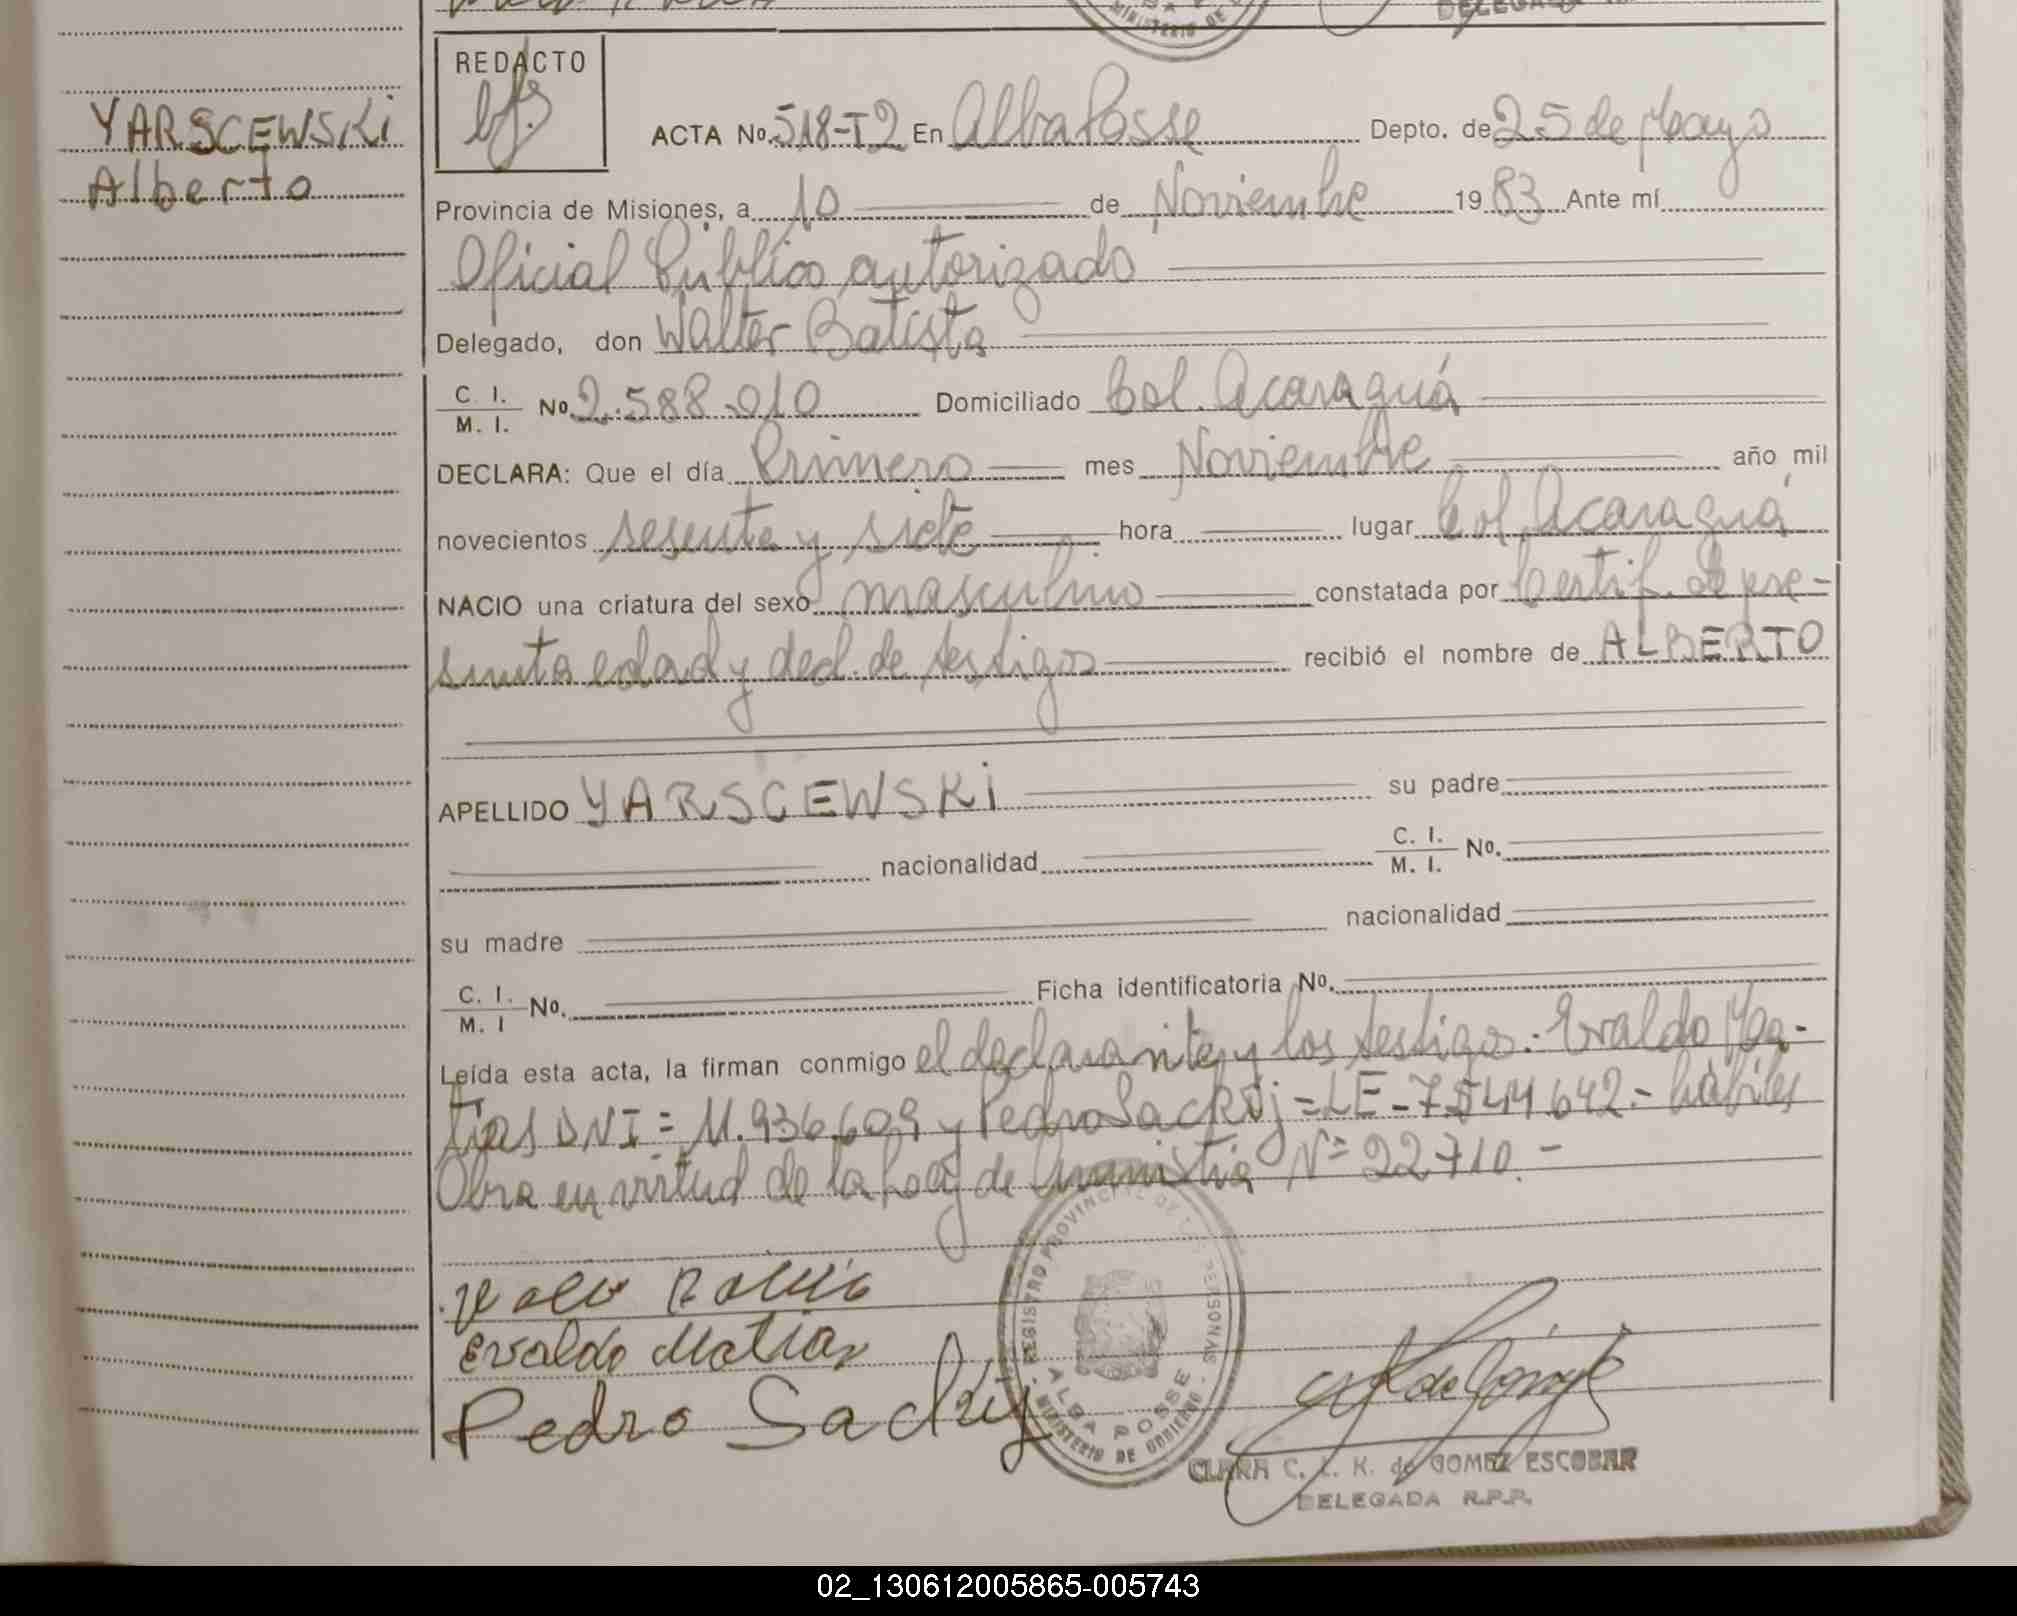 YARSCEWSKi
Alberto
REDACTO
ACTA No. 518-T2 En Alba Posse Depto. de 25 de Mayo
Provincia de Misiones, a 10 de Noviembre 1983 Ante mí
Oficial Público autorizado
Delegado, don Walter Batista
C. I. / M. I. No. 2.588.010 Domiciliado Col. Acaraguá
DECLARA: Que el día Primero mes Noviembre año mil
novecientos sesenta y siete hora lugar Col. Acaraguá
NACIO una criatura del sexo masculino constatada por Certif. de pre-
sunta edad y decl. de testigos recibió el nombre de ALBERTO
APELLIDO YARSCEWSKi su padre
nacionalidad C. I. / M. I. No.
su madre nacionalidad
C. I. / M. I No. Ficha identificatoria No.
Leída esta acta, la firman conmigo el declarante y los testigos: Evaldo Ma-
tias DNI = 11.936.609 y Pedro Sackij = LE - 7.544.642.- hábiles
Obra en virtud de la Ley de Amnistia Nº 22710.-
Evaldo Matias
Pedro Sackij
REGISTRO PROVINCIAL DE LAS PERSONAS
ALBA POSSE
MINISTERIO DE GOBIERNO
CLARA C. L. K. de GOMEZ ESCOBAR
DELEGADA R.P.P.
02_130612005865-005743